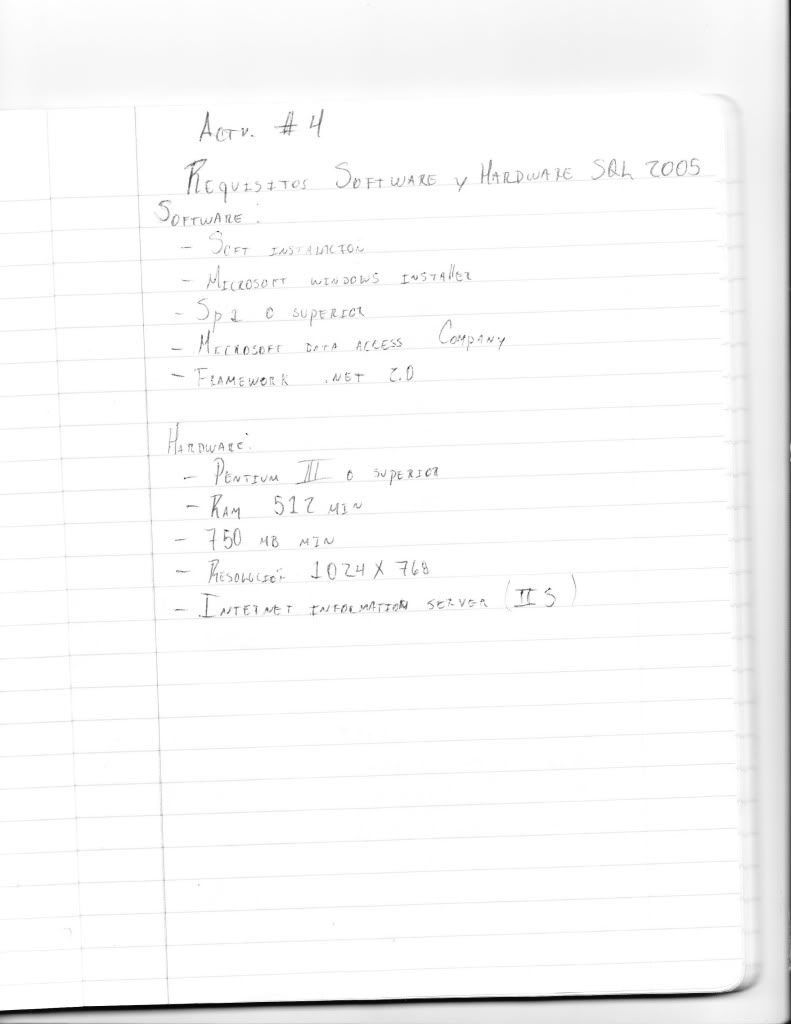 Actv. #4
Requisitos Software y Hardware SQL 2005
Software:
- Soft instalacion
- Microsoft windows installer
- Sp 2 o superior
- Microsoft data access Company
- Framework .net 2.0
Hardware:
- Pentium III o superior
- Ram 512 min
- 750 MB min
- Resolución 1024 X 768
- Internet information server (IIS)